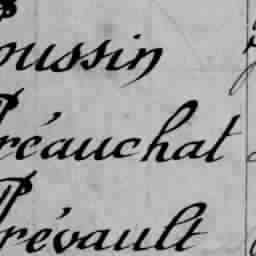 Poussin
Préauchat
Prévault